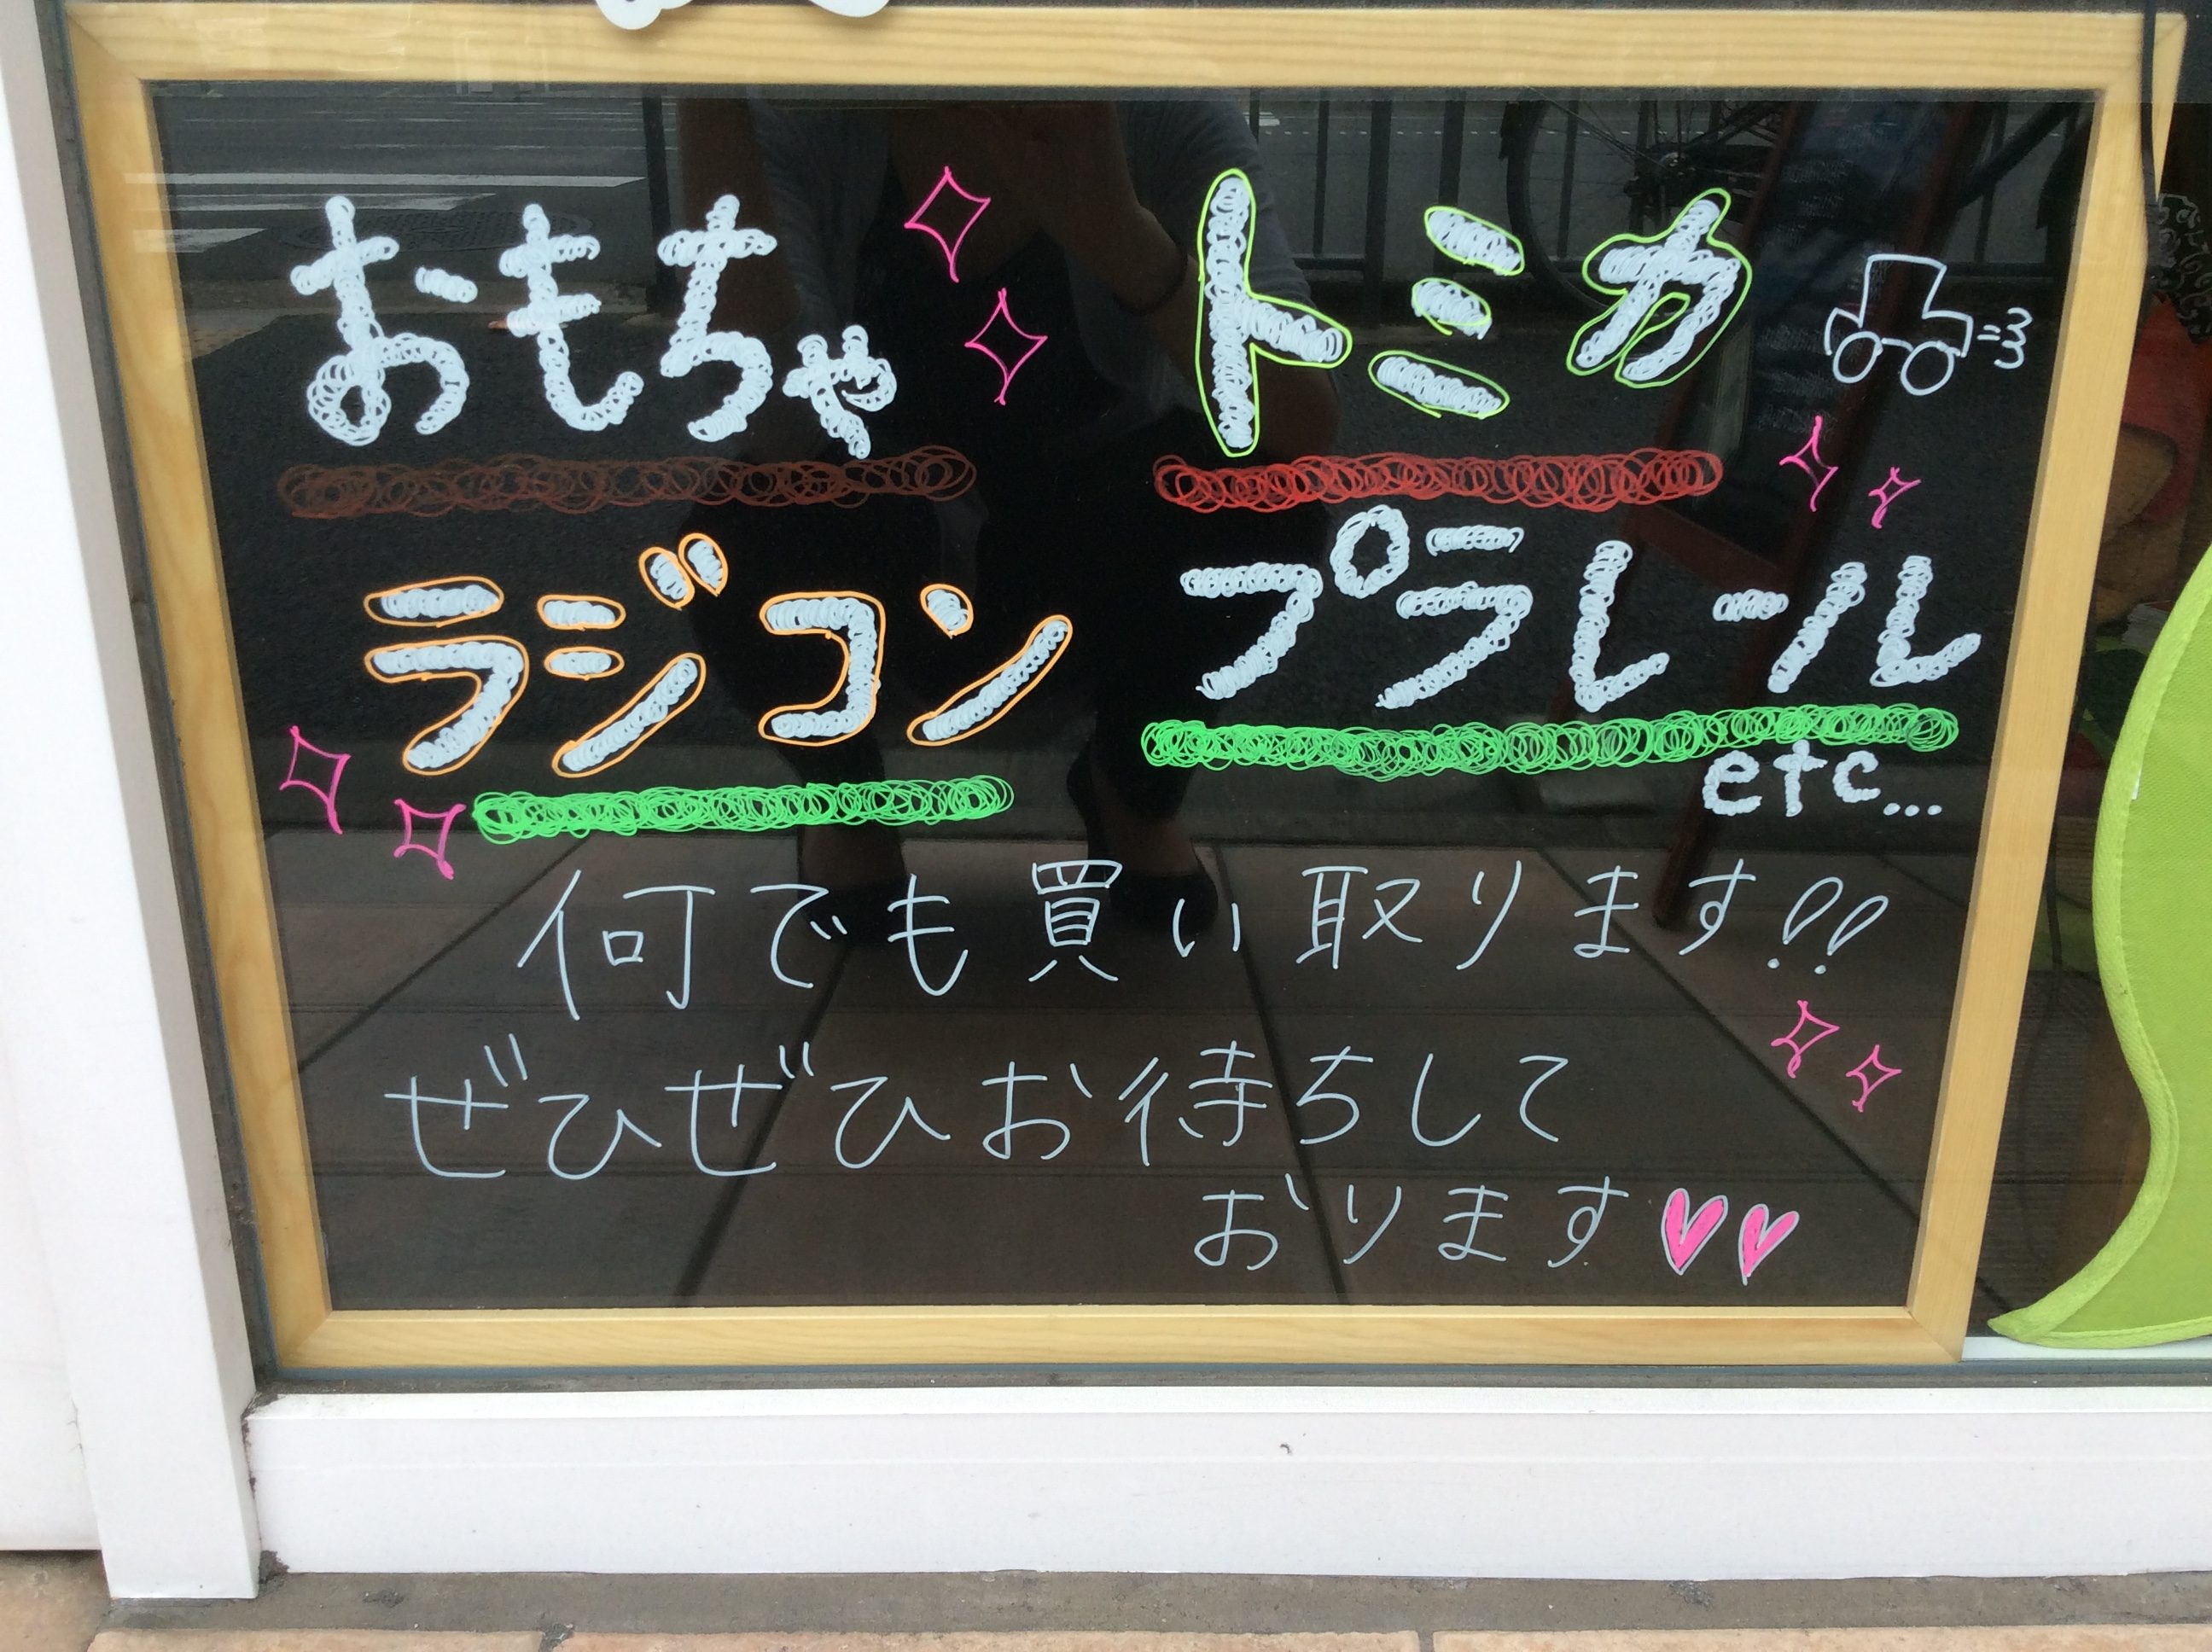 おもちゃ
トミカ
ラジコン
プラレール
etc...
何でも買い取ります!!
ぜひぜひお待ちして
おります